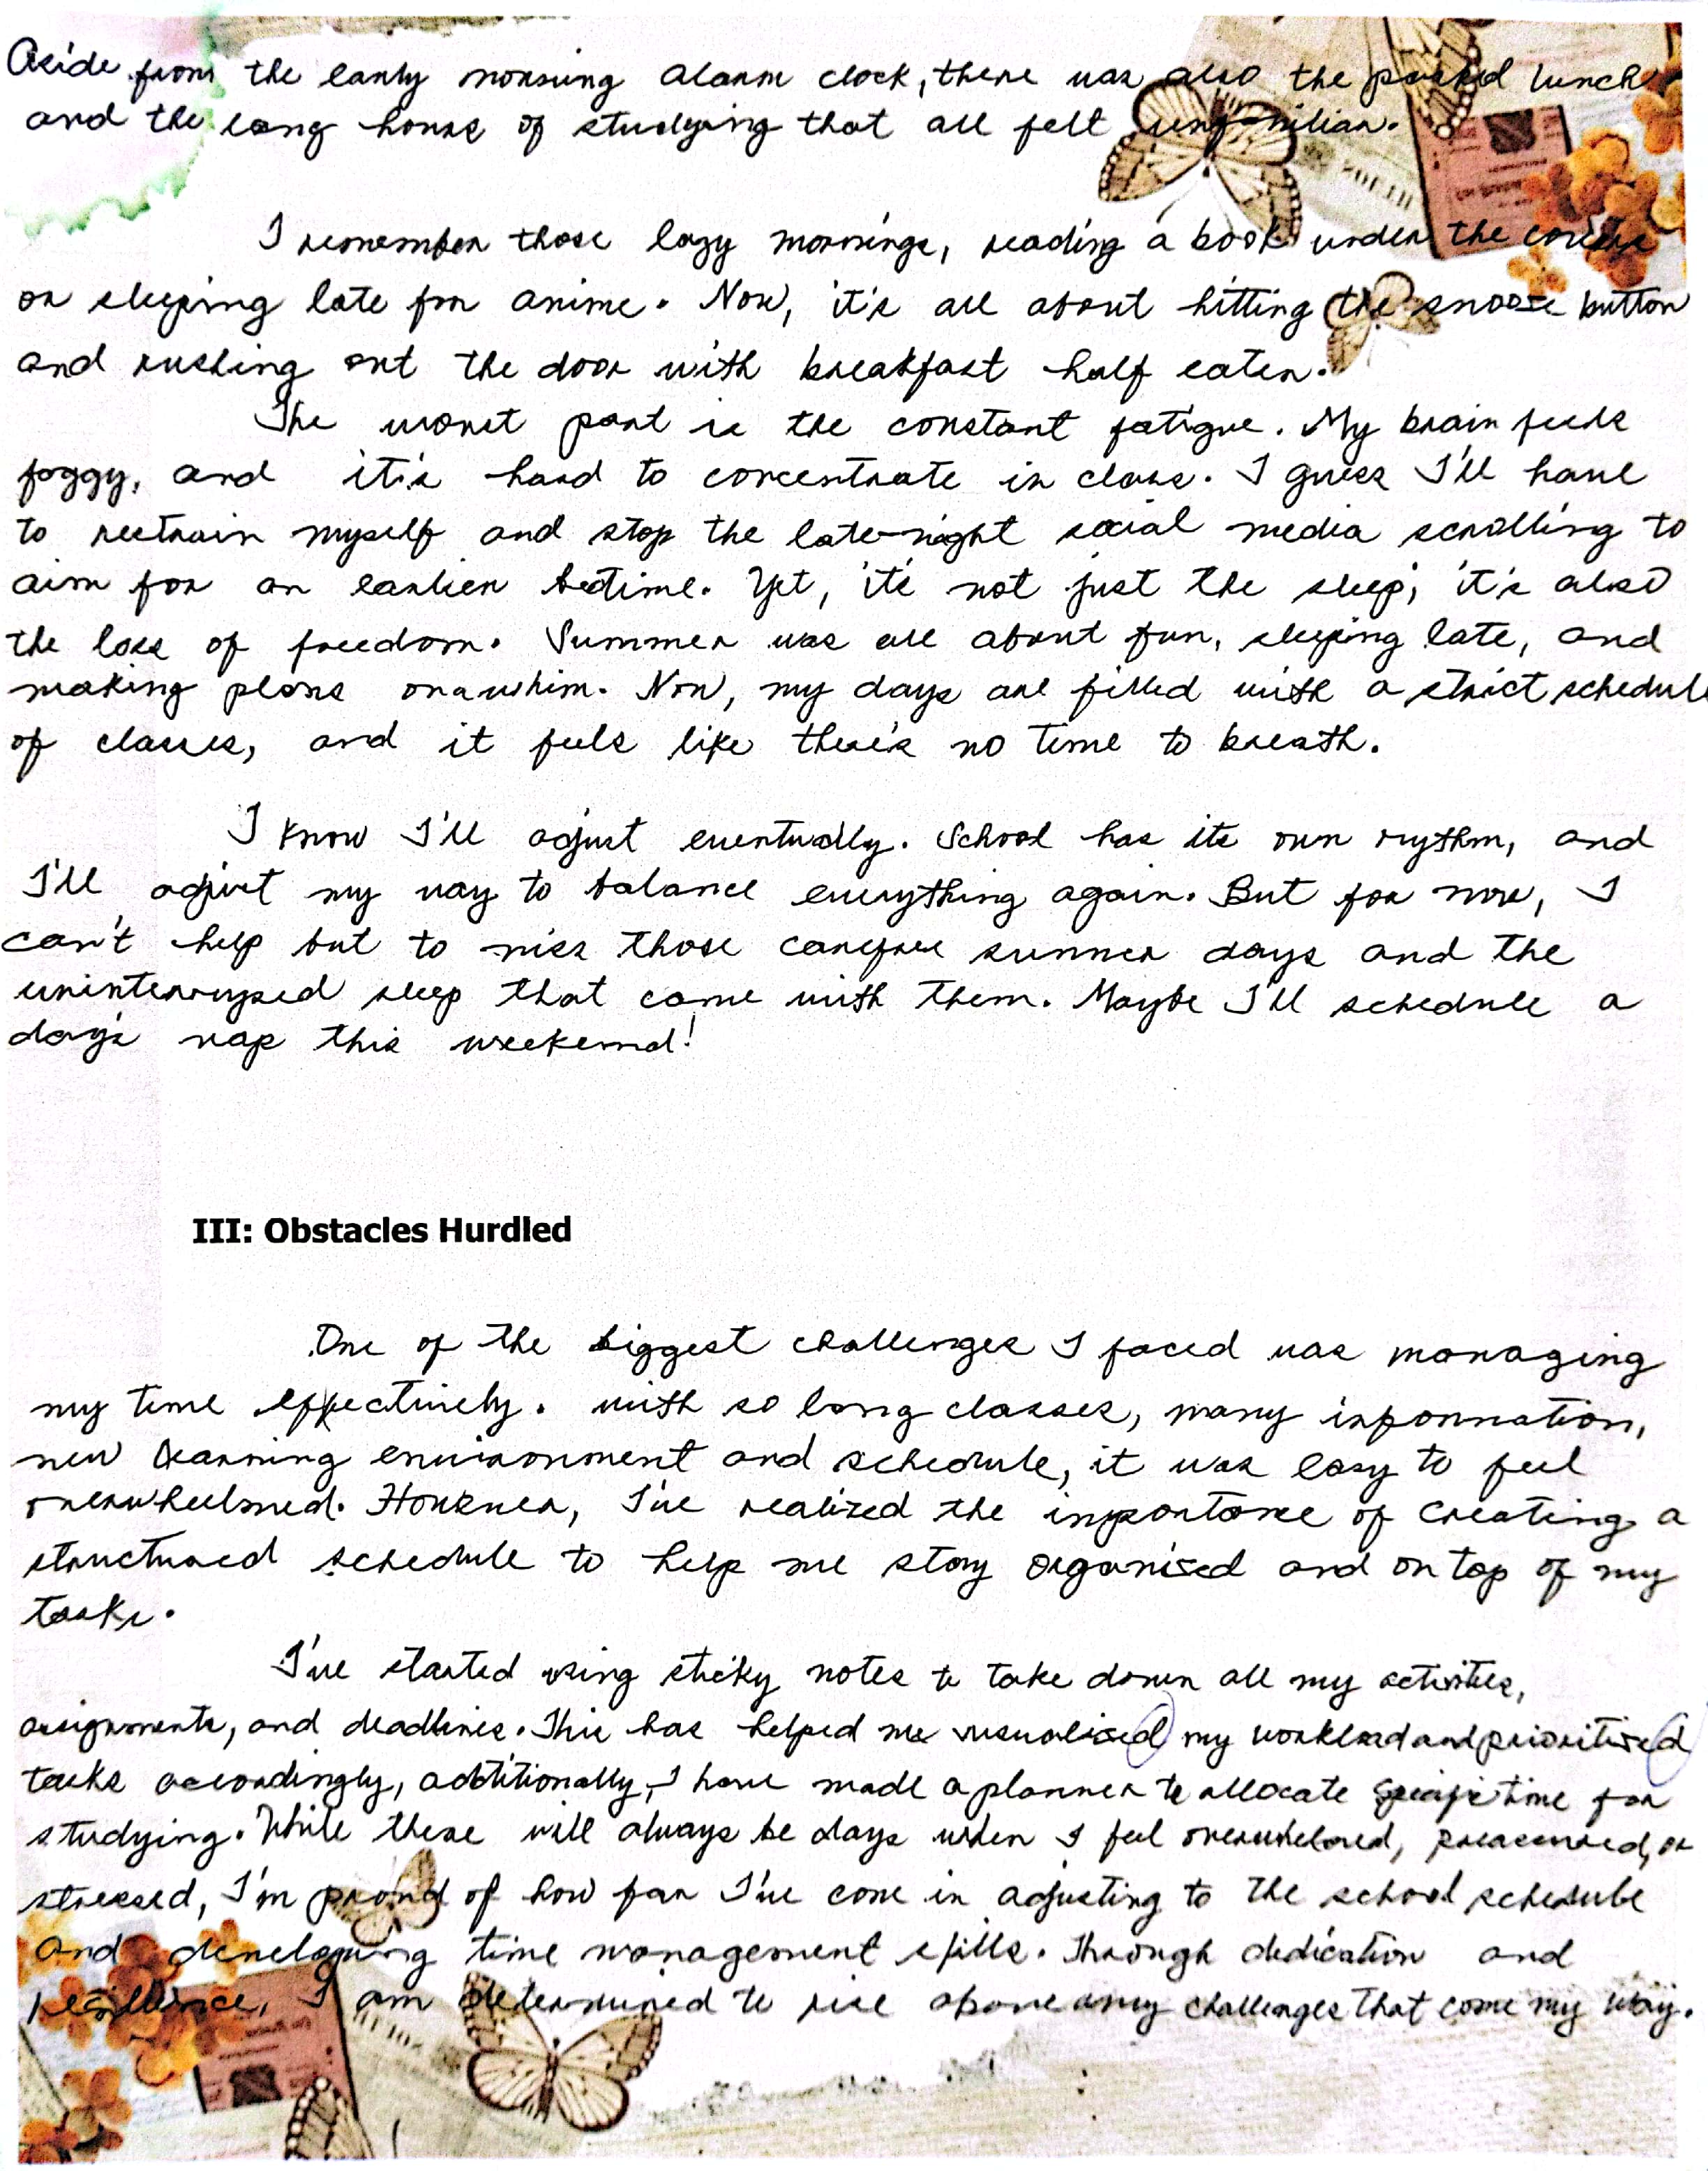 Aside from the early morning alarm clock, there was also the packed lunch
and the long hours of studying that all felt unfamiliar.
I remember those lazy mornings, reading a book under the covers
or sleeping late for anime. Now, it's all about hitting the snooze button
and rushing out the door with breakfast half eaten.
The worst part is the constant fatigue. My brain feels
foggy, and it's hard to concentrate in class. I guess I'll have
to restrain myself and stop the late-night social media scrolling to
aim for an earlier bedtime. Yet, it's not just the sleep; it's also
the loss of freedom. Summer was all about fun, sleeping late, and
making plans on a whim. Now, my days are filled with a strict schedule
of classes, and it feels like there's no time to breath.
I know I'll adjust eventually. School has its own rythm, and
I'll adjust my way to balance everything again. But for now, I
can't help but to miss those carefree summer days and the
uninterrupted sleep that came with them. Maybe I'll schedule a
day's nap this weekend!
III: Obstacles Hurdled
One of the biggest challenges I faced was managing
my time effectively. with so long classes, many information,
new learning environment and schedule, it was easy to feel
overwhelmed. However, I've realized the importance of creating a
structured schedule to help me stay organized and on top of my
tasks.
I've started using sticky notes to take down all my activities,
assignments, and deadlines. This has helped me visualized my workload and prioritized
tasks accordingly, additionally, I have made a planner to allocate specific time for
studying. While there will always be days when I feel overwhelmed, pressured, or
stressed, I'm proud of how far I've come in adjusting to the school schedule
and developing time management skills. Through dedication and
resilience, I am determined to rise above any challenges that come my way.